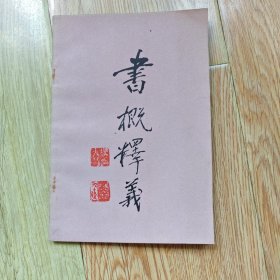 書概釋義